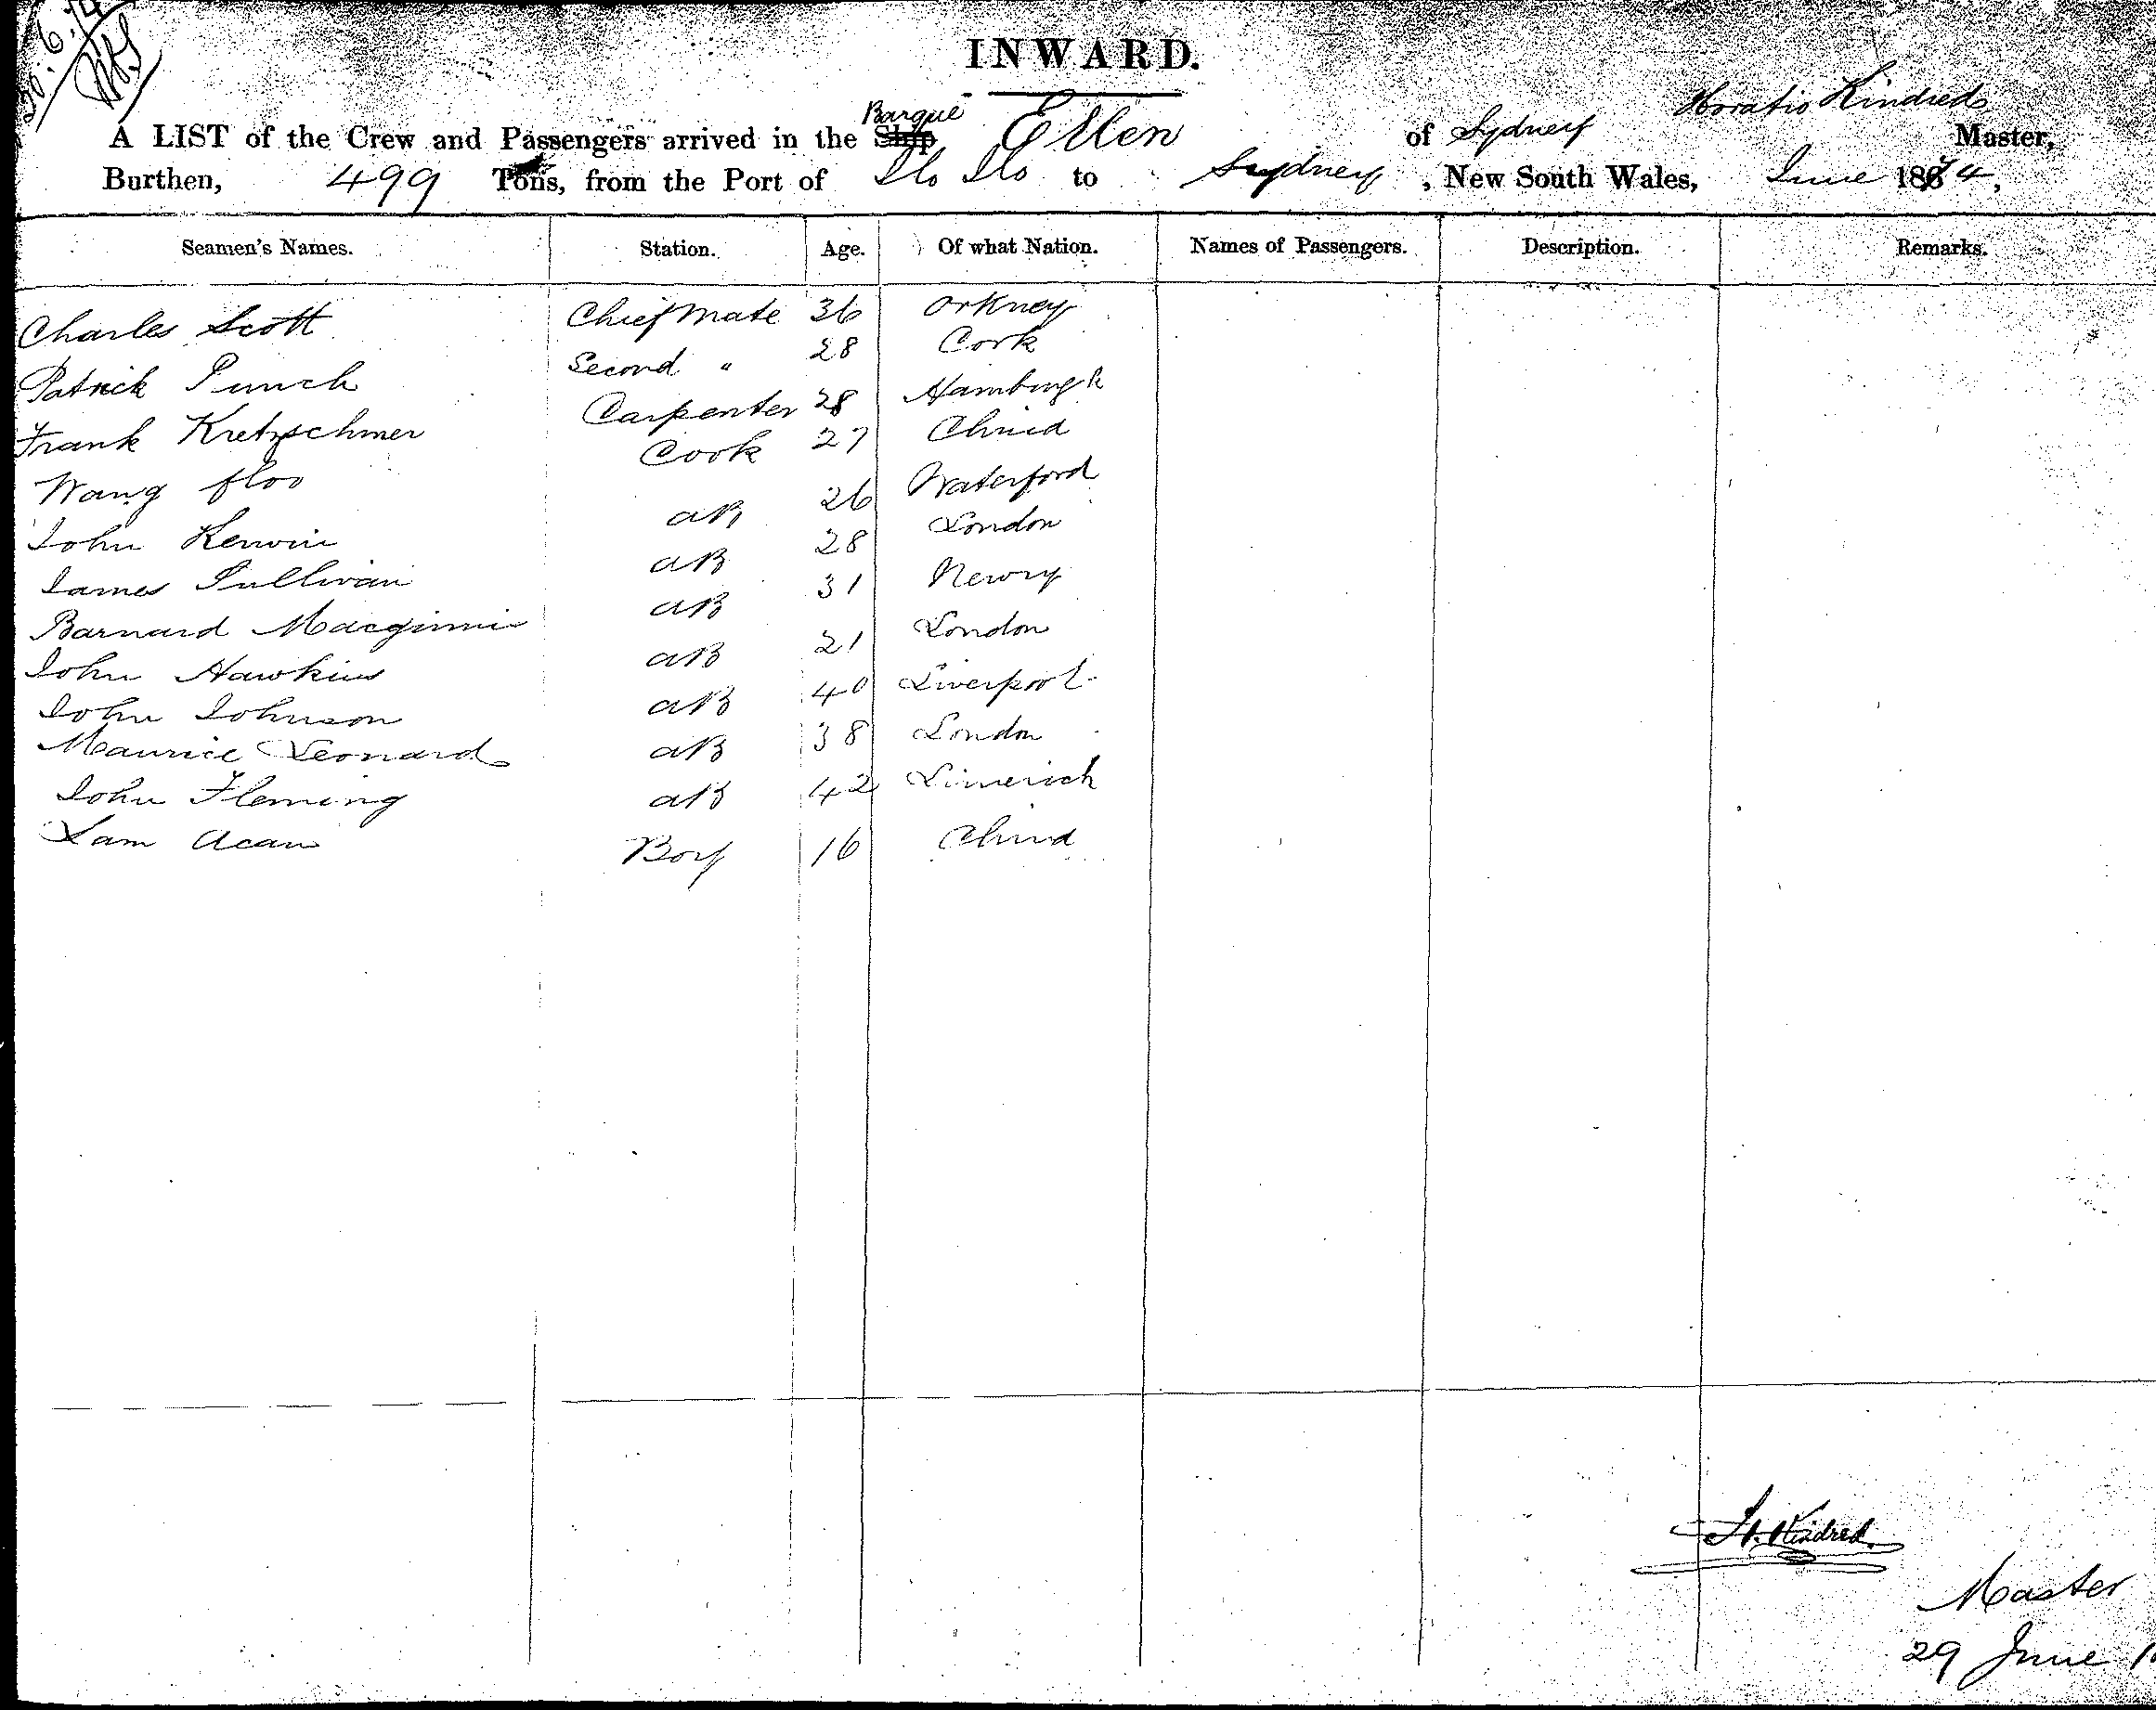 30.6.74
INWARD.
Barque
Horatio Kindred
A LIST of the Crew and Passengers arrived in the Ship Ellen of Sydney Master,
Burthen, 499 Tons, from the Port of Ilo Ilo to Sydney, New South Wales, June 1874,
Seamen's Names. Station. Age. Of what Nation. Names of Passengers. Description. Remarks.
Charles Scott Chief Mate 36 Orkney
Patrick Punch Second " 28 Cork
Frank Kretzschmer Carpenter 28 Hamburgh
Wang Cook 27 China
John Kerwin AB 26 Waterford
James Sullivan AB 28 London
Barnard Macginnis AB 31 Newry
John Hawkins AB 21 London
John Johnson AB 40 Liverpool
Maurice Leonard AB 38 London
John Fleming AB 42 Limerick
Lam Acan Boy 16 China
H. Kindred
Master
29 June